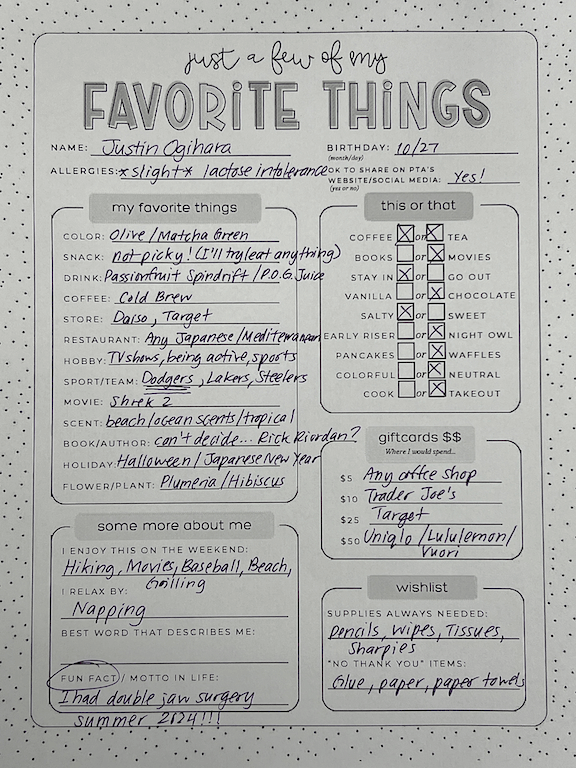 just a few of my
FAVORITE THINGS
NAME: Justin Ogihara
BIRTHDAY: 10/27
(month/day)
ALLERGIES: *slight* lactose intolerance
OK TO SHARE ON PTA'S
WEBSITE/SOCIAL MEDIA: Yes!
(yes or no)
my favorite things
COLOR: Olive/Matcha Green
SNACK: not picky! (I'll try/eat anything)
DRINK: Passionfruit Spindrift/P.O.G. Juice
COFFEE: Cold Brew
STORE: Daiso, Target
RESTAURANT: Any Japanese/Mediterranean
HOBBY: TV shows, being active, sports
SPORT/TEAM: Dodgers, Lakers, Steelers
MOVIE: Shrek 2
SCENT: beach/ocean scents/tropical
BOOK/AUTHOR: can't decide... Rick Riordan?
HOLIDAY: Halloween/Japanese New Year
FLOWER/PLANT: Plumeria/Hibiscus
this or that
COFFEE or TEA
BOOKS or MOVIES
STAY IN or GO OUT
VANILLA or CHOCOLATE
SALTY or SWEET
EARLY RISER or NIGHT OWL
PANCAKES or WAFFLES
COLORFUL or NEUTRAL
COOK or TAKEOUT
giftcards $$
Where I would spend...
$5 Any coffee shop
$10 Trader Joe's
$25 Target
$50 Uniqlo/Lululemon/
Vuori
some more about me
I ENJOY THIS ON THE WEEKEND:
Hiking, Movies, Baseball, Beach,
Grilling
I RELAX BY:
Napping
BEST WORD THAT DESCRIBES ME:
FUN FACT / MOTTO IN LIFE:
I had double jaw surgery
summer 2024!!!
wishlist
SUPPLIES ALWAYS NEEDED:
Pencils, Wipes, Tissues,
Sharpies
"NO THANK YOU" ITEMS:
Glue, paper, paper towels